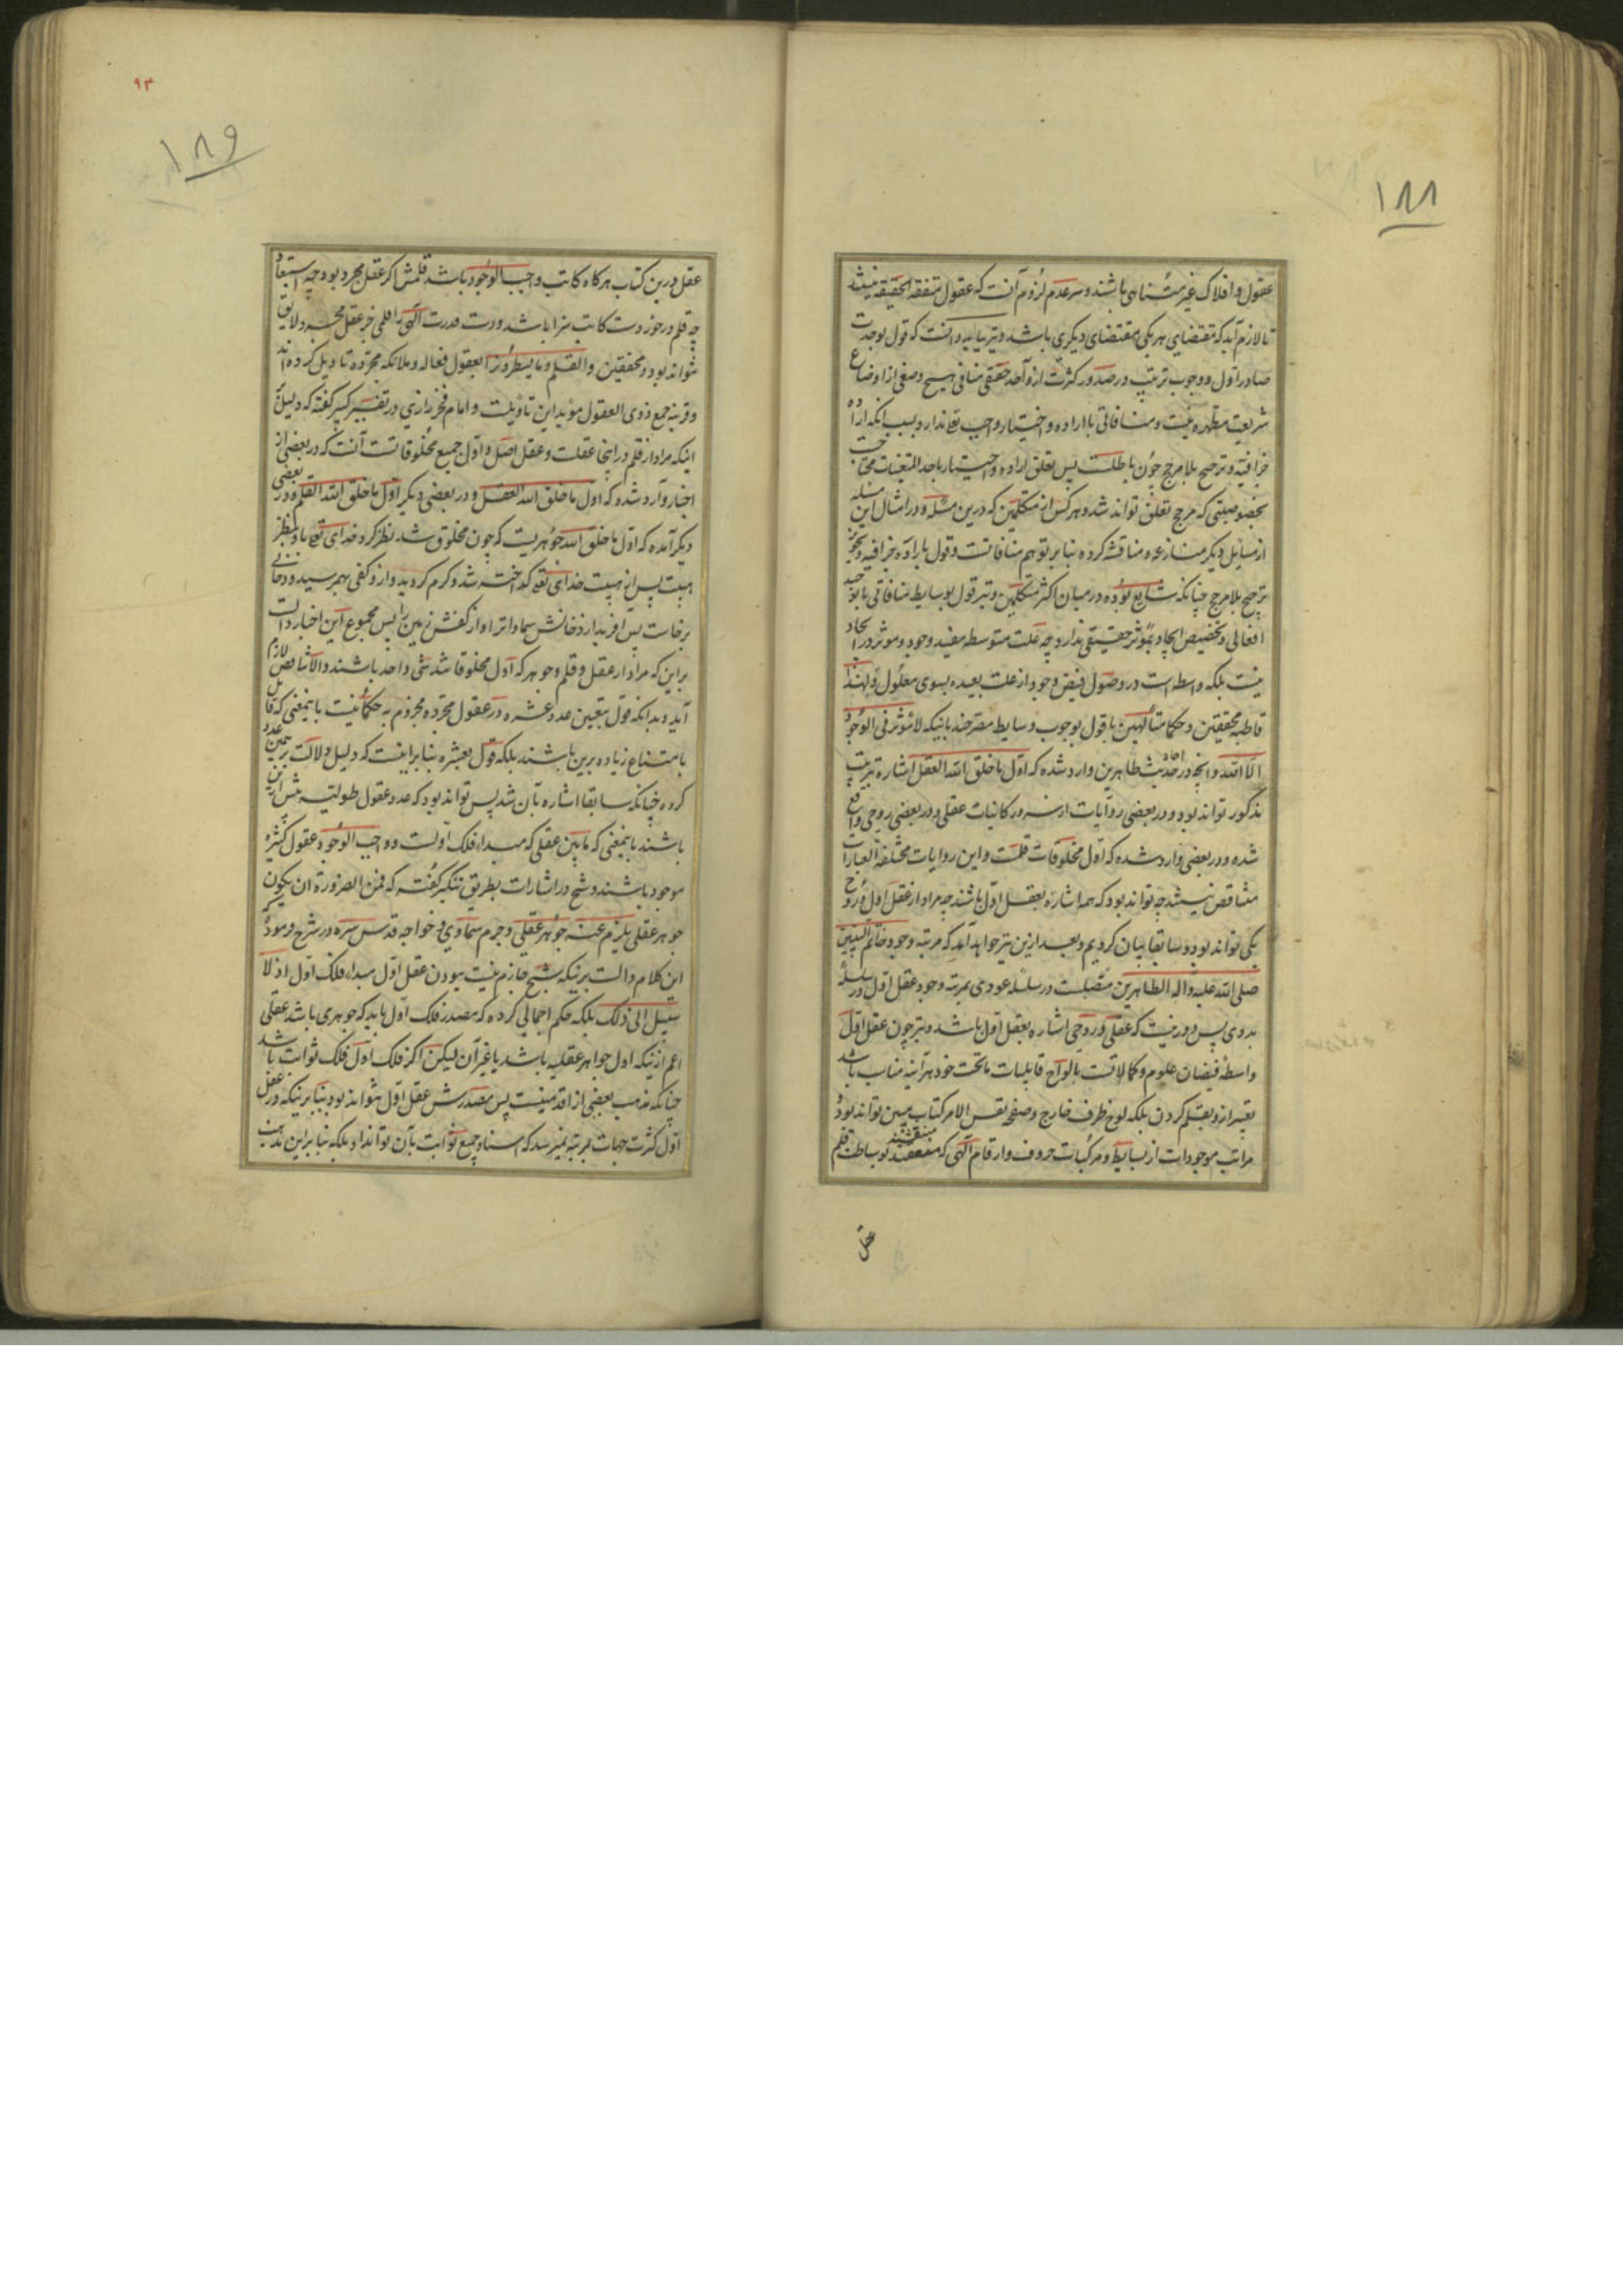 ۱۸۸
عقول و افلاک غیر متناهی باشند و سر عدم لزوم آنست که عقول متفقة الحقیقه نیستند
تا لازم آید که مقتضای هر یکی مقتضای دیگری باشد و نیز باید دانست که قول بوحدت
صادر اول و وجوب ترتیب در صدور کثرت از واحد حقیقی منافی هیچ وضعی از اوضاع
شریعت مطهره نیست و منافاتی با اراده و اختیار واجب تع ندارد بسبب انکه اراده
جزافیه و ترجیح بلامرجح چون باطلست پس تعلق اراده و اختیار باحد المتعینات محتاجست
بخصوصیتی که مرجح تعلق تواند شد و هر کس از متکلمین که درین مسئله و در امثال این مسئله
از مسایل دیگر منازعه و مناقشه کرده بنابر توهم منافاتست و قول باراده جزافیه و تجویز
ترجیح بلامرجح چنانکه شایع بوده در میان اکثر متکلمین و نیز قول بوسایط منافاتی با توحید
افعالی و تخصیص ایجاد بمؤثر حقیقی ندارد چه علت متوسطه مفید وجود و موثر در ایجاد
نیست بلکه واسطه است در وصول فیض وجود از علت بعیده بسوی معلول و لهذا
قاطبه محققین و حکما متألهین با قول بوجوب وسایط مصرحند باینکه لا مؤثر فی الوجود
الا الله و آنچه در احادیث طاهرین وارد شده که اول ما خلق الله العقل اشاره بترتیب
مذکور تواند بود و در بعضی روایات عقلی و در بعضی روحی واقع
شده و در بعضی وارد شده که اول مخلوقات قلمست و این روایات مختلفة العبارات
متناقض نیستند چه تواند بود که همه اشاره بعقل اول باشند چه مراد از عقل اول و روح
یکی تواند بود و سابقا بیان کردیم و بعد ازین نیز خواهد آمد که مرتبه وجود خاتم النبیین
صلی الله علیه و اله الطاهرین متصلست در سلسله عودی بمرتبه وجود عقل اول در سلسله
بدوی پس دور نیست که عقلی و روحی اشاره بعقل اول باشد و نیز چون عقل اول
واسطه فیضان علوم و کمالاتست بالواح قابلیات ماتحت خود هراینه مناسب باشد
تعبیر ازو بقلم کردن بلکه لوح ظرف خارج و صفحه نفس الامر کتاب مبین تواند بود و
مراتب موجودات از بسایط و مرکبات حروف و ارقام الهی که منتقشند بوساطت قلم
عقل
۹۳
۱۸۹
عقل درین کتاب هرکاه کاتب واجب الوجود باشد قلمش اکر عقل مجرد بود چه استبعاد
چه قلم در خور دست کاتب سزا باشد و دست قدرت الهی را قلمی جز عقل مجرد لایق
نتواند بود و محققین والقلم وما یسطرون را بعقول فعاله و ملائکه مجرده تاویل کرده اند
و قرینه جمع ذوی العقول موید این تاویلست و امام فخر رازی در تفسیر کبیر کفته که دلیل
اینکه مراد از قلم در اینجا عقلست و عقل اصل و اول جمیع مخلوقاتست آنست که در بعضی از
اخبار وارد شده که اول ما خلق الله العقل و در بعضی دیکر اول ما خلق الله القلم و در بعضی
دیکر آمده که اول ما خلق الله جوهریست که چون مخلوق شد نظر کرد خدای تع باو بنظر
هیبت پس از هیبت خدای تع کداخته شد و کرم کردید و ازو کفی بهم رسید و دخانی
برخاست پس آفرید از دخانش سماوات را و از کفش زمین را پس مجموع این اخبار دالست
بر این که مراد از عقل و قلم و جوهر که اول مخلوقاتند شئ واحد باشند و الا تناقض لازم
آید و بدانکه قول بتعیین عدد عشره در عقول مجرده مجزوم به حکما نیست بایمعنی که قایل
بامتناع زیاده برین باشند بلکه قول بعشره بنابر اینست که دلیل دلالت برهمین عدد
کرده چنانکه سابقا اشاره بآن شد پس تواند بود که عدد عقول طولیه بیش ازین
باشند بایمعنی که مابین عقلی که مبداء فلک اولست و واجب الوجود عقول کثیره
موجود باشند و شیخ در اشارات بطریق تنکیر کفته که فمن الضرورة ان یکون
جوهر عقلی یلزم عنه جوهر عقلی و جرم سماوی و خواجه قدس سره در شرح فرموده که
این کلام دالست برینکه شیخ جازم نیست ببودن عقل اول مبداء فلک اول اذ لا
سبیل الی ذلک بلکه حکم اجمالی کرده که مصدر فلک اول باید که جوهری باشد عقلی
اعم ازینکه اول جواهر عقلیه باشد یا غیر آن لیکن اکر فلک اول فلک ثوابت باشد
چنانکه مذهب بعضی از اقدمینست پس مصدرش عقل اول نتواند بود بنابرینکه در عقل
اول کثرت جهات بمرتبه نمیرسد که اسناد جمیع ثوابت بآن تواند داد بلکه بنابراین مذهب